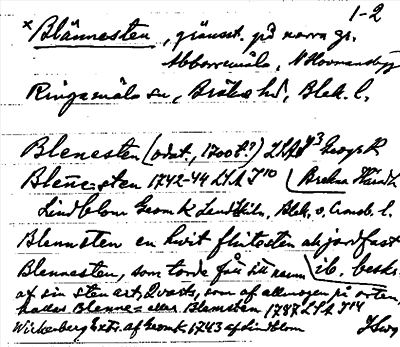 1-2
× Blännesten, gränsst. på norra gr.
Abborremåla, N Hovmansbygd
Ringamåla sn, Bräkne hd, Blek. l.
Blenesten (odat., 1700 t.?) LSA Y3 Geogr K
Blenesten 1742-44 LSA Y10 (Brekne Härdh
Lindblom Geom K Landthiln, Blek. o. l.
Blennsten en hvit flintesten ahjordfast
Blennesten, som torde få sitt namn ib. beskr.
af sin sten art, Qvarts, som af allmogen på orten,
kallas Blenne- eller Blemsten 1788 LSA Y14
Wickenberg Extr. af Geom K 1743 af Lindblom